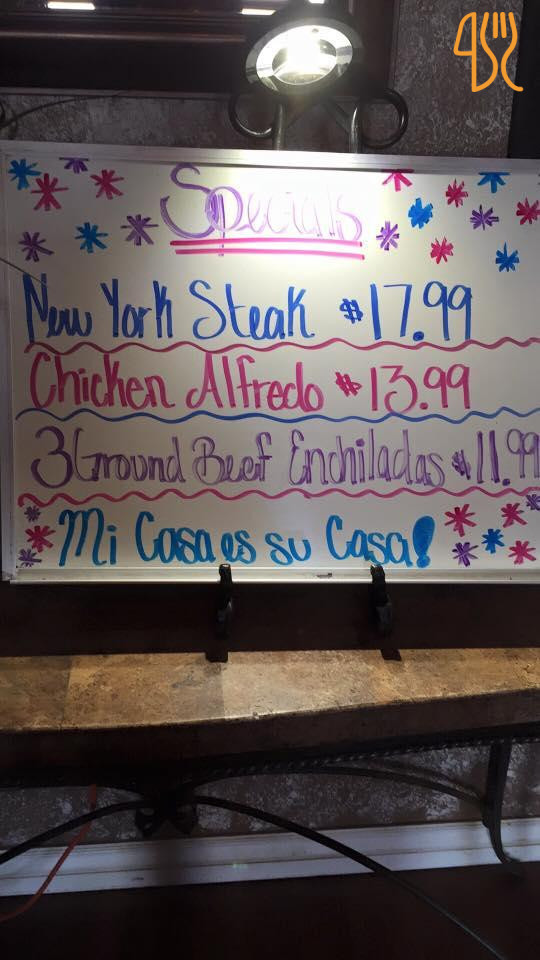 Specials
New York Steak $17.99
Chicken Alfredo $13.99
3 Ground Beef Enchiladas $11.99
Mi Casa es su Casa!